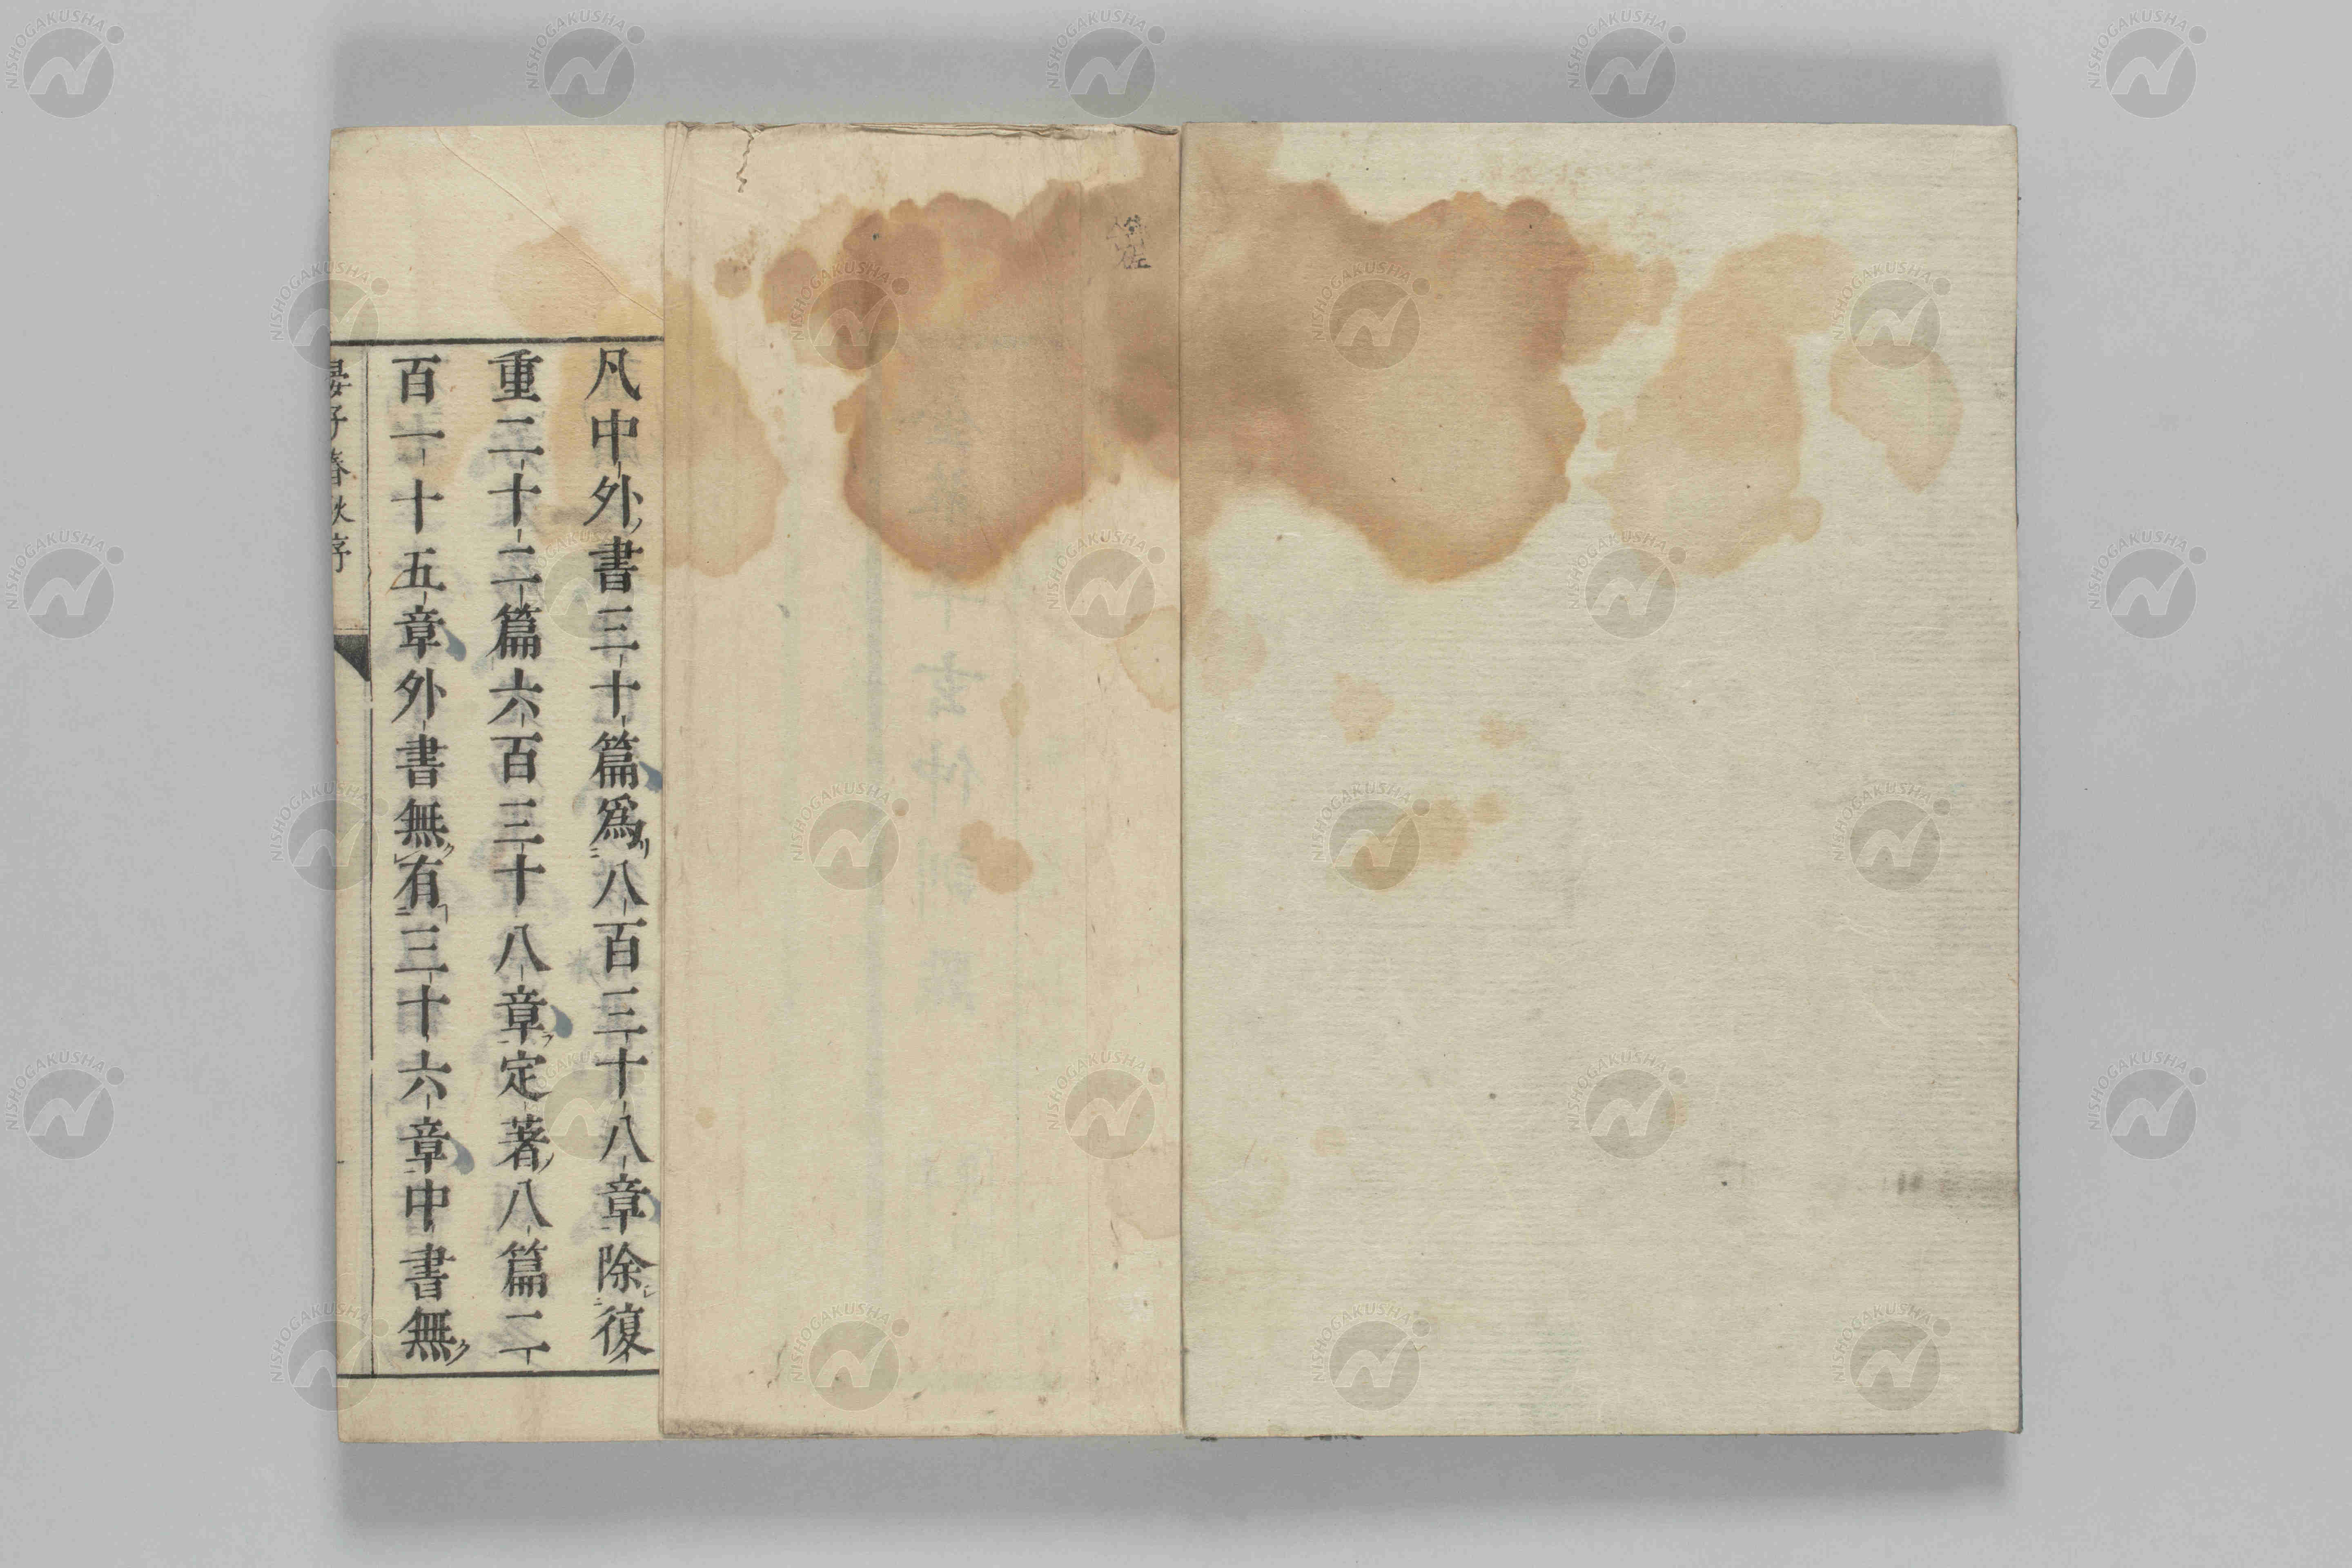 凡中外書三十篇爲八百三十八章除復
重二十二篇六百三十八章定著八篇二
百一十五章外書無有三十六章中書無
晏子春秋序
NISHOGAKUSHA